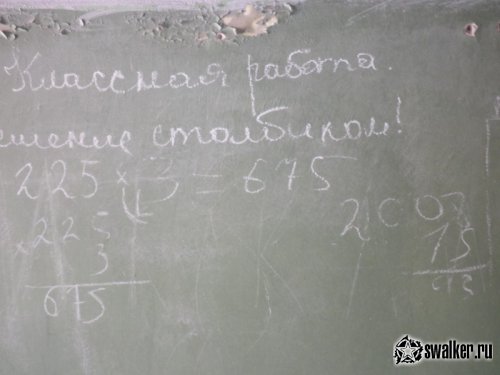 Классная работа.
ешение столбиком!
225 × 3 = 675
× 225
3
675
2003
15
swalker.ru